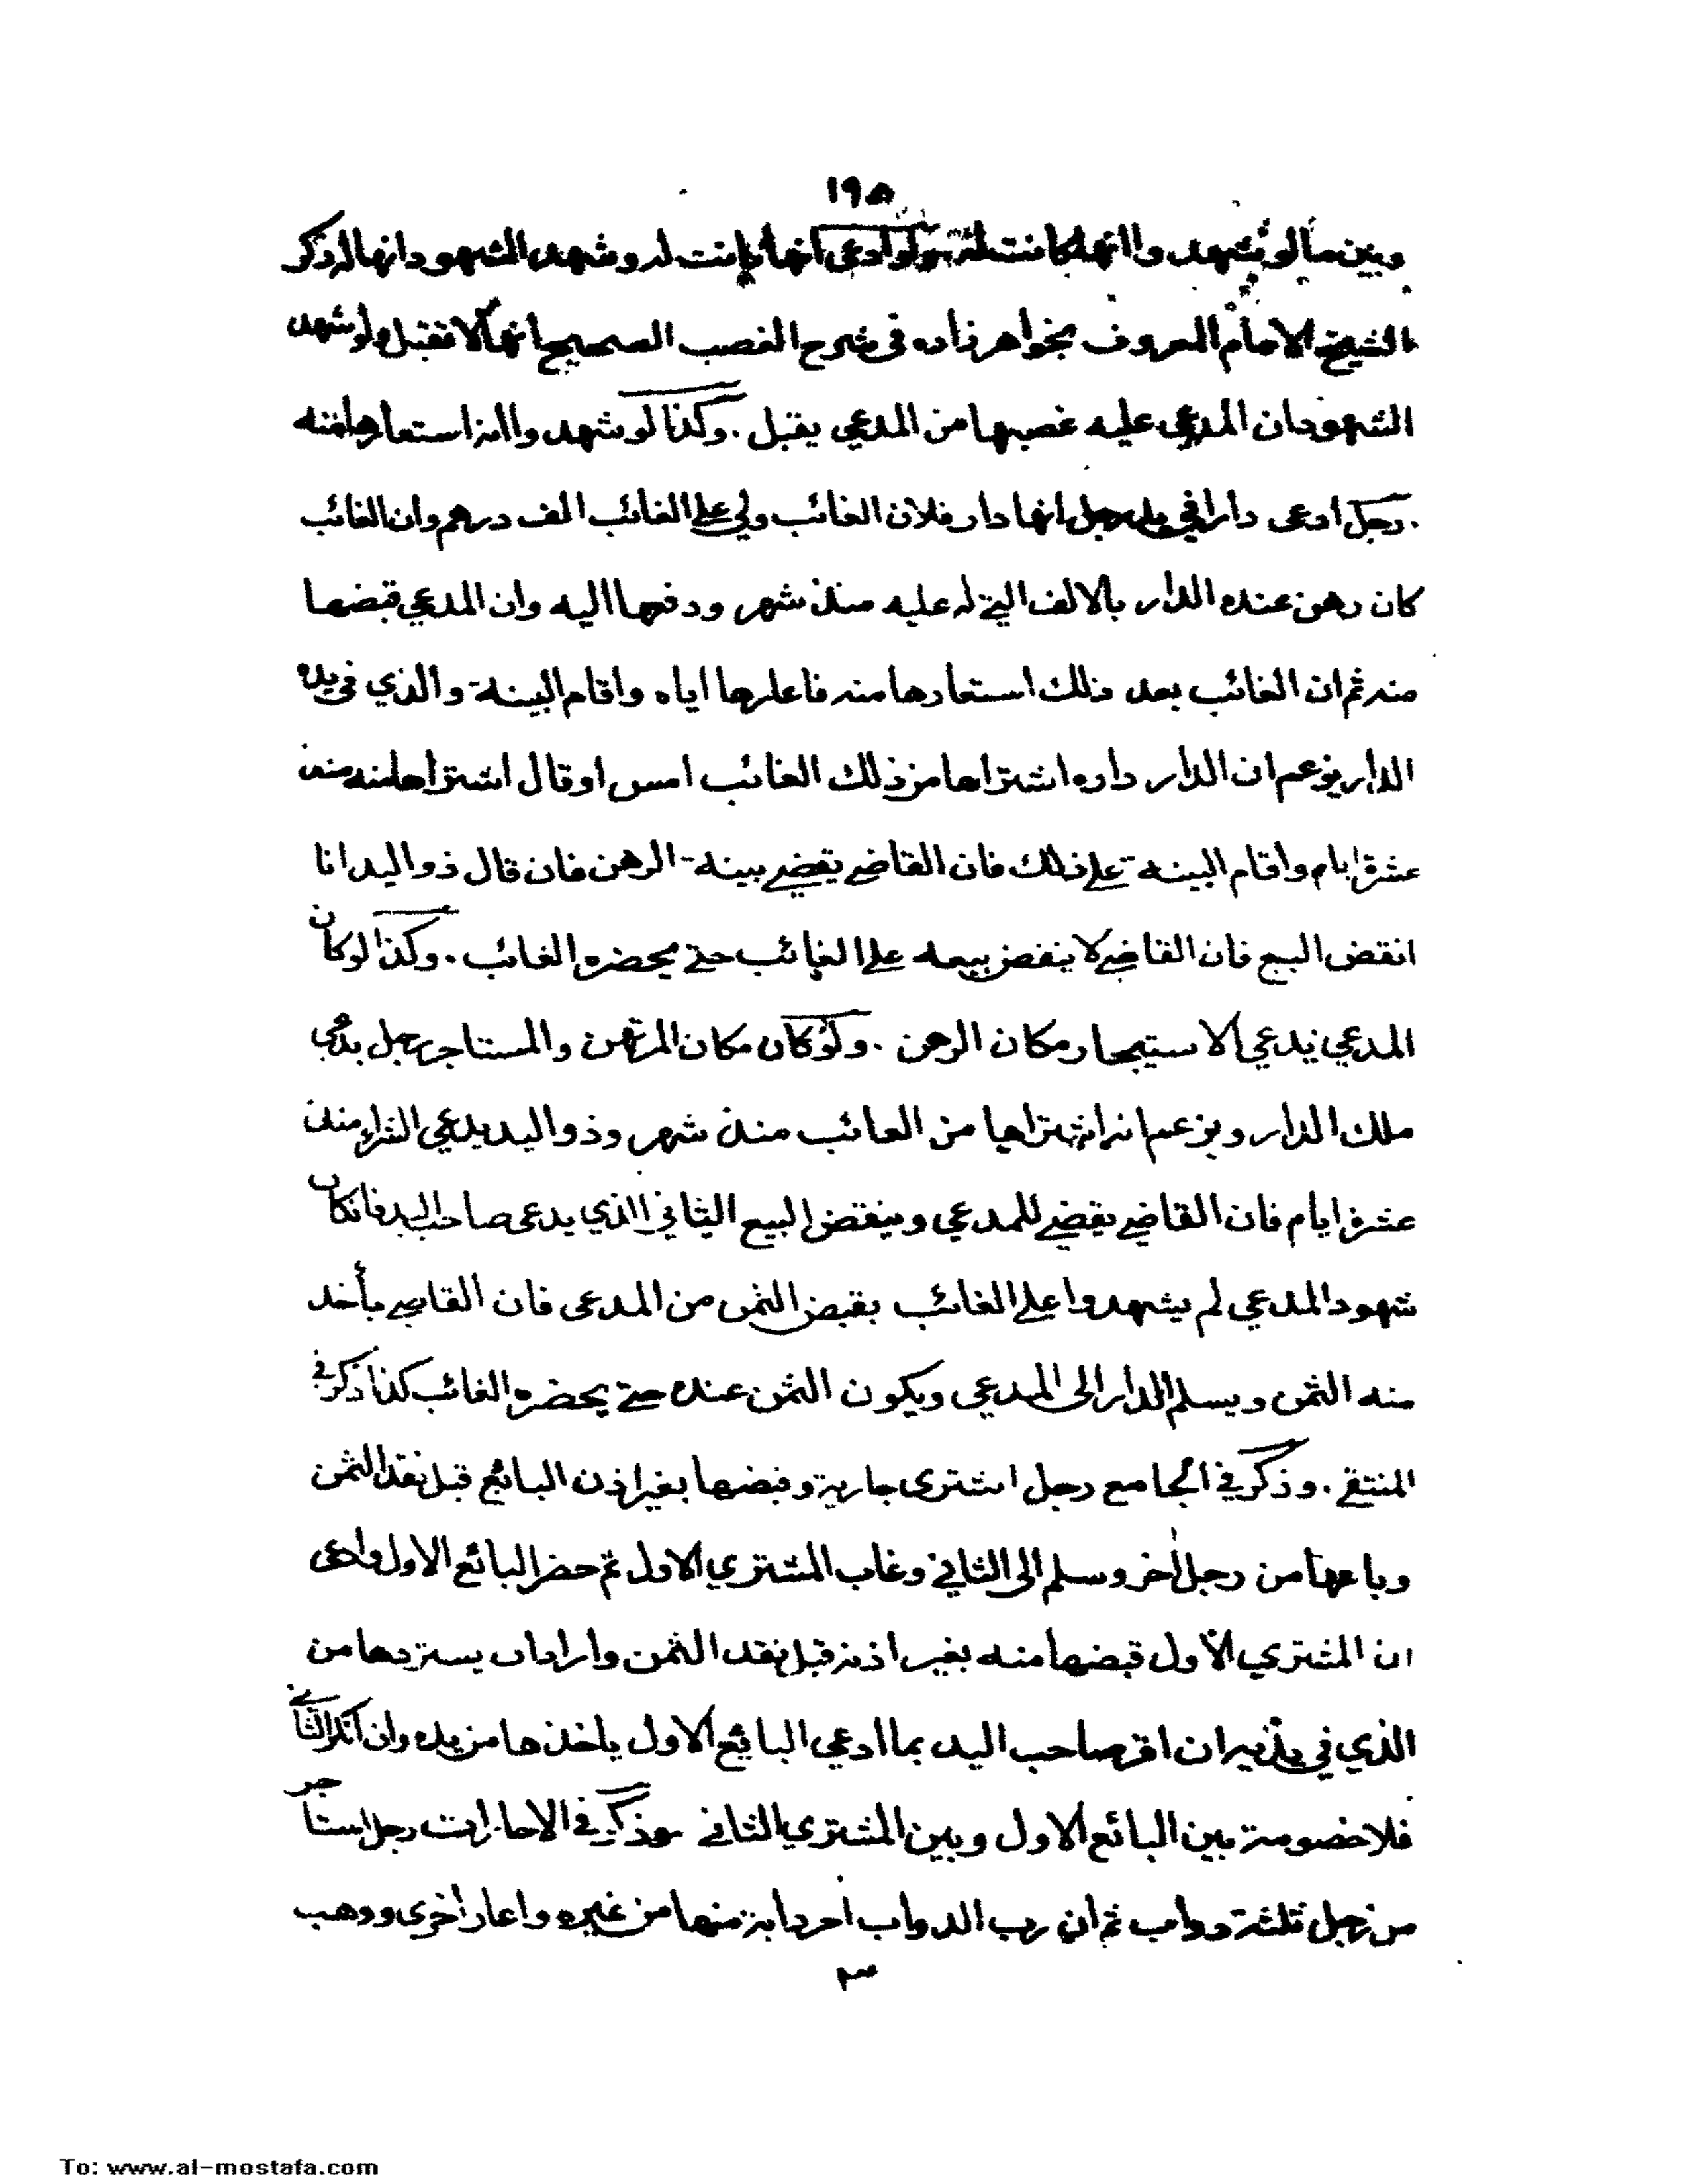 ١٩٥
وبين ما لو شهدوا انها كانت له ولو ادعى انها كانت له وشهد الشهود انها له ذكر
الشيخ الامام المعروف بخواهر زاده في شرح الغصب الصحيح انها لا تقبل ولو شهد
الشهود ان المدعي عليه غصبها من المدعي يقبل . وكذا لو شهدوا انه استعارها منه
. رجل ادعى دارا في يد رجل انها دار فلان الغائب ولي على الغائب الف درهم وان الغائب
كان رهن عنده الدار بالالف التي له عليه منذ شهر ودفعها اليه وان المدعي قبضها
منه ثم ان الغائب بعد ذلك استعارها منه فاعارها اياه واقام البينة والذي في يده
الدار يزعم ان الدار داره اشتراها من ذلك الغائب امس او قال اشتراها منه منذ
عشرة ايام واقام البينة على ذلك فان القاضي يقضي ببينة الرهن فان قال ذو اليد انا
انقض البيع فان القاضي لا ينقض بيعه على الغائب حتى يحضره الغائب . وكذا لو كان
المدعي يدعي الاستيجار مكان الرهن . ولو كان مكان المرتهن والمستاجر رجل يدعي
ملك الدار ويزعم انه اشتراها من الغائب منذ شهر وذو اليد يدعي الشراء منذ
عشرة ايام فان القاضي يقضي للمدعي وينقض البيع الثاني الذي يدعى صاحب اليد فان كان
شهود المدعي لم يشهدوا على الغائب بقبض الثمن من المدعى فان القاضي يأخذ
منه الثمن ويسلم الدار الى المدعي ويكون الثمن عنده حتى يحضره الغائب كذا ذكر في
المنتقى . وذكر في الجامع رجل اشترى جارية وقبضها بغير اذن البائع قبل نقد الثمن
وباعها من رجل اخر وسلم الى الثاني وغاب المشتري الاول ثم حضر البائع الاول وادعى
ان المشتري الأول قبضها منه بغير اذنه قبل نقد الثمن واراد ان يستردها من
الذي في يديه ان اقر صاحب اليد بما ادعي البايع الاول ياخذها من يده وان انكر الثاني
فلا خصومة بين البائع الاول وبين المشتري الثاني وذكر في الاجارات رجل استاجر
من رجل ثلثة دواب ثم ان رب الدواب اجر دابة منها من غيره واعار اخرى ووهب
٣
To: www.al-mostafa.com